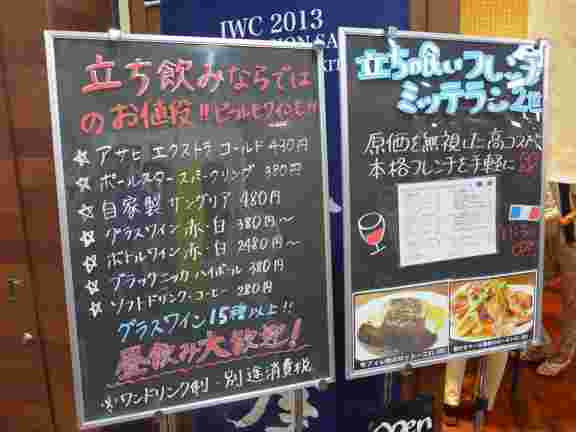 IWC 2013
立ち飲みならでは
のお値段!!ビールもワインも!!
☆アサヒ エクストラ ゴールド 430円
☆ポールスター スパークリング 380円
☆自家製 サングリア 480円
☆グラスワイン 赤・白 380円〜
☆ボトルワイン 赤・白 2480円〜
☆ブラックニッカ ハイボール 380円
☆ソフトドリンク・コーヒー 280円
グラスワイン15種以上!!
昼飲み大歓迎!
※ワンドリンク制・別途消費税
立ち喰いフレンチ
ミッテラン2世
原価を無視した高コスパ
本格フレンチを手軽に
open